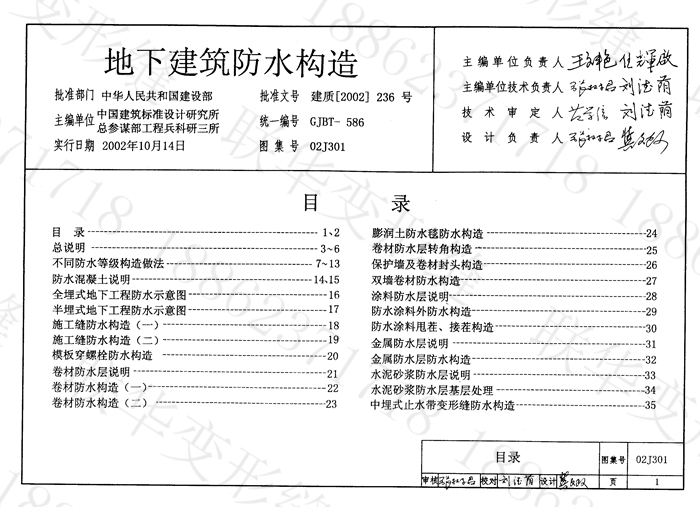 地下建筑防水构造
批准部门 中华人民共和国建设部 批准文号 建质[2002] 236 号
主编单位 中国建筑标准设计研究所
总参谋部工程兵科研三所 统一编号 GJBT- 586
实行日期 2002年10月14日 图集号 02J301
主编单位负责人
主编单位技术负责人 刘
技术审定人 刘
设计负责人
目 录
目 录 1、2
总说明 3~6
不同防水等级构造做法 7~13
防水混凝土说明 14、15
全埋式地下工程防水示意图 16
半埋式地下工程防水示意图 17
施工缝防水构造（一） 18
施工缝防水构造（二） 19
模板穿螺栓防水构造 20
卷材防水层说明 21
卷材防水构造（一） 22
卷材防水构造（二） 23
膨润土防水毯防水构造 24
卷材防水层转角构造 25
保护墙及卷材封头构造 26
双墙卷材防水构造 27
涂料防水层说明 28
防水涂料外防水构造 29
防水涂料甩茬、接茬构造 30
金属防水层说明 31
金属防水层防水构造 32
水泥砂浆防水层说明 33
水泥砂浆防水层基层处理 34
中埋式止水带变形缝防水构造 35
目录 图集号 02J301
审核 校对 刘 设计 页 1
联华变形缝 18862371718